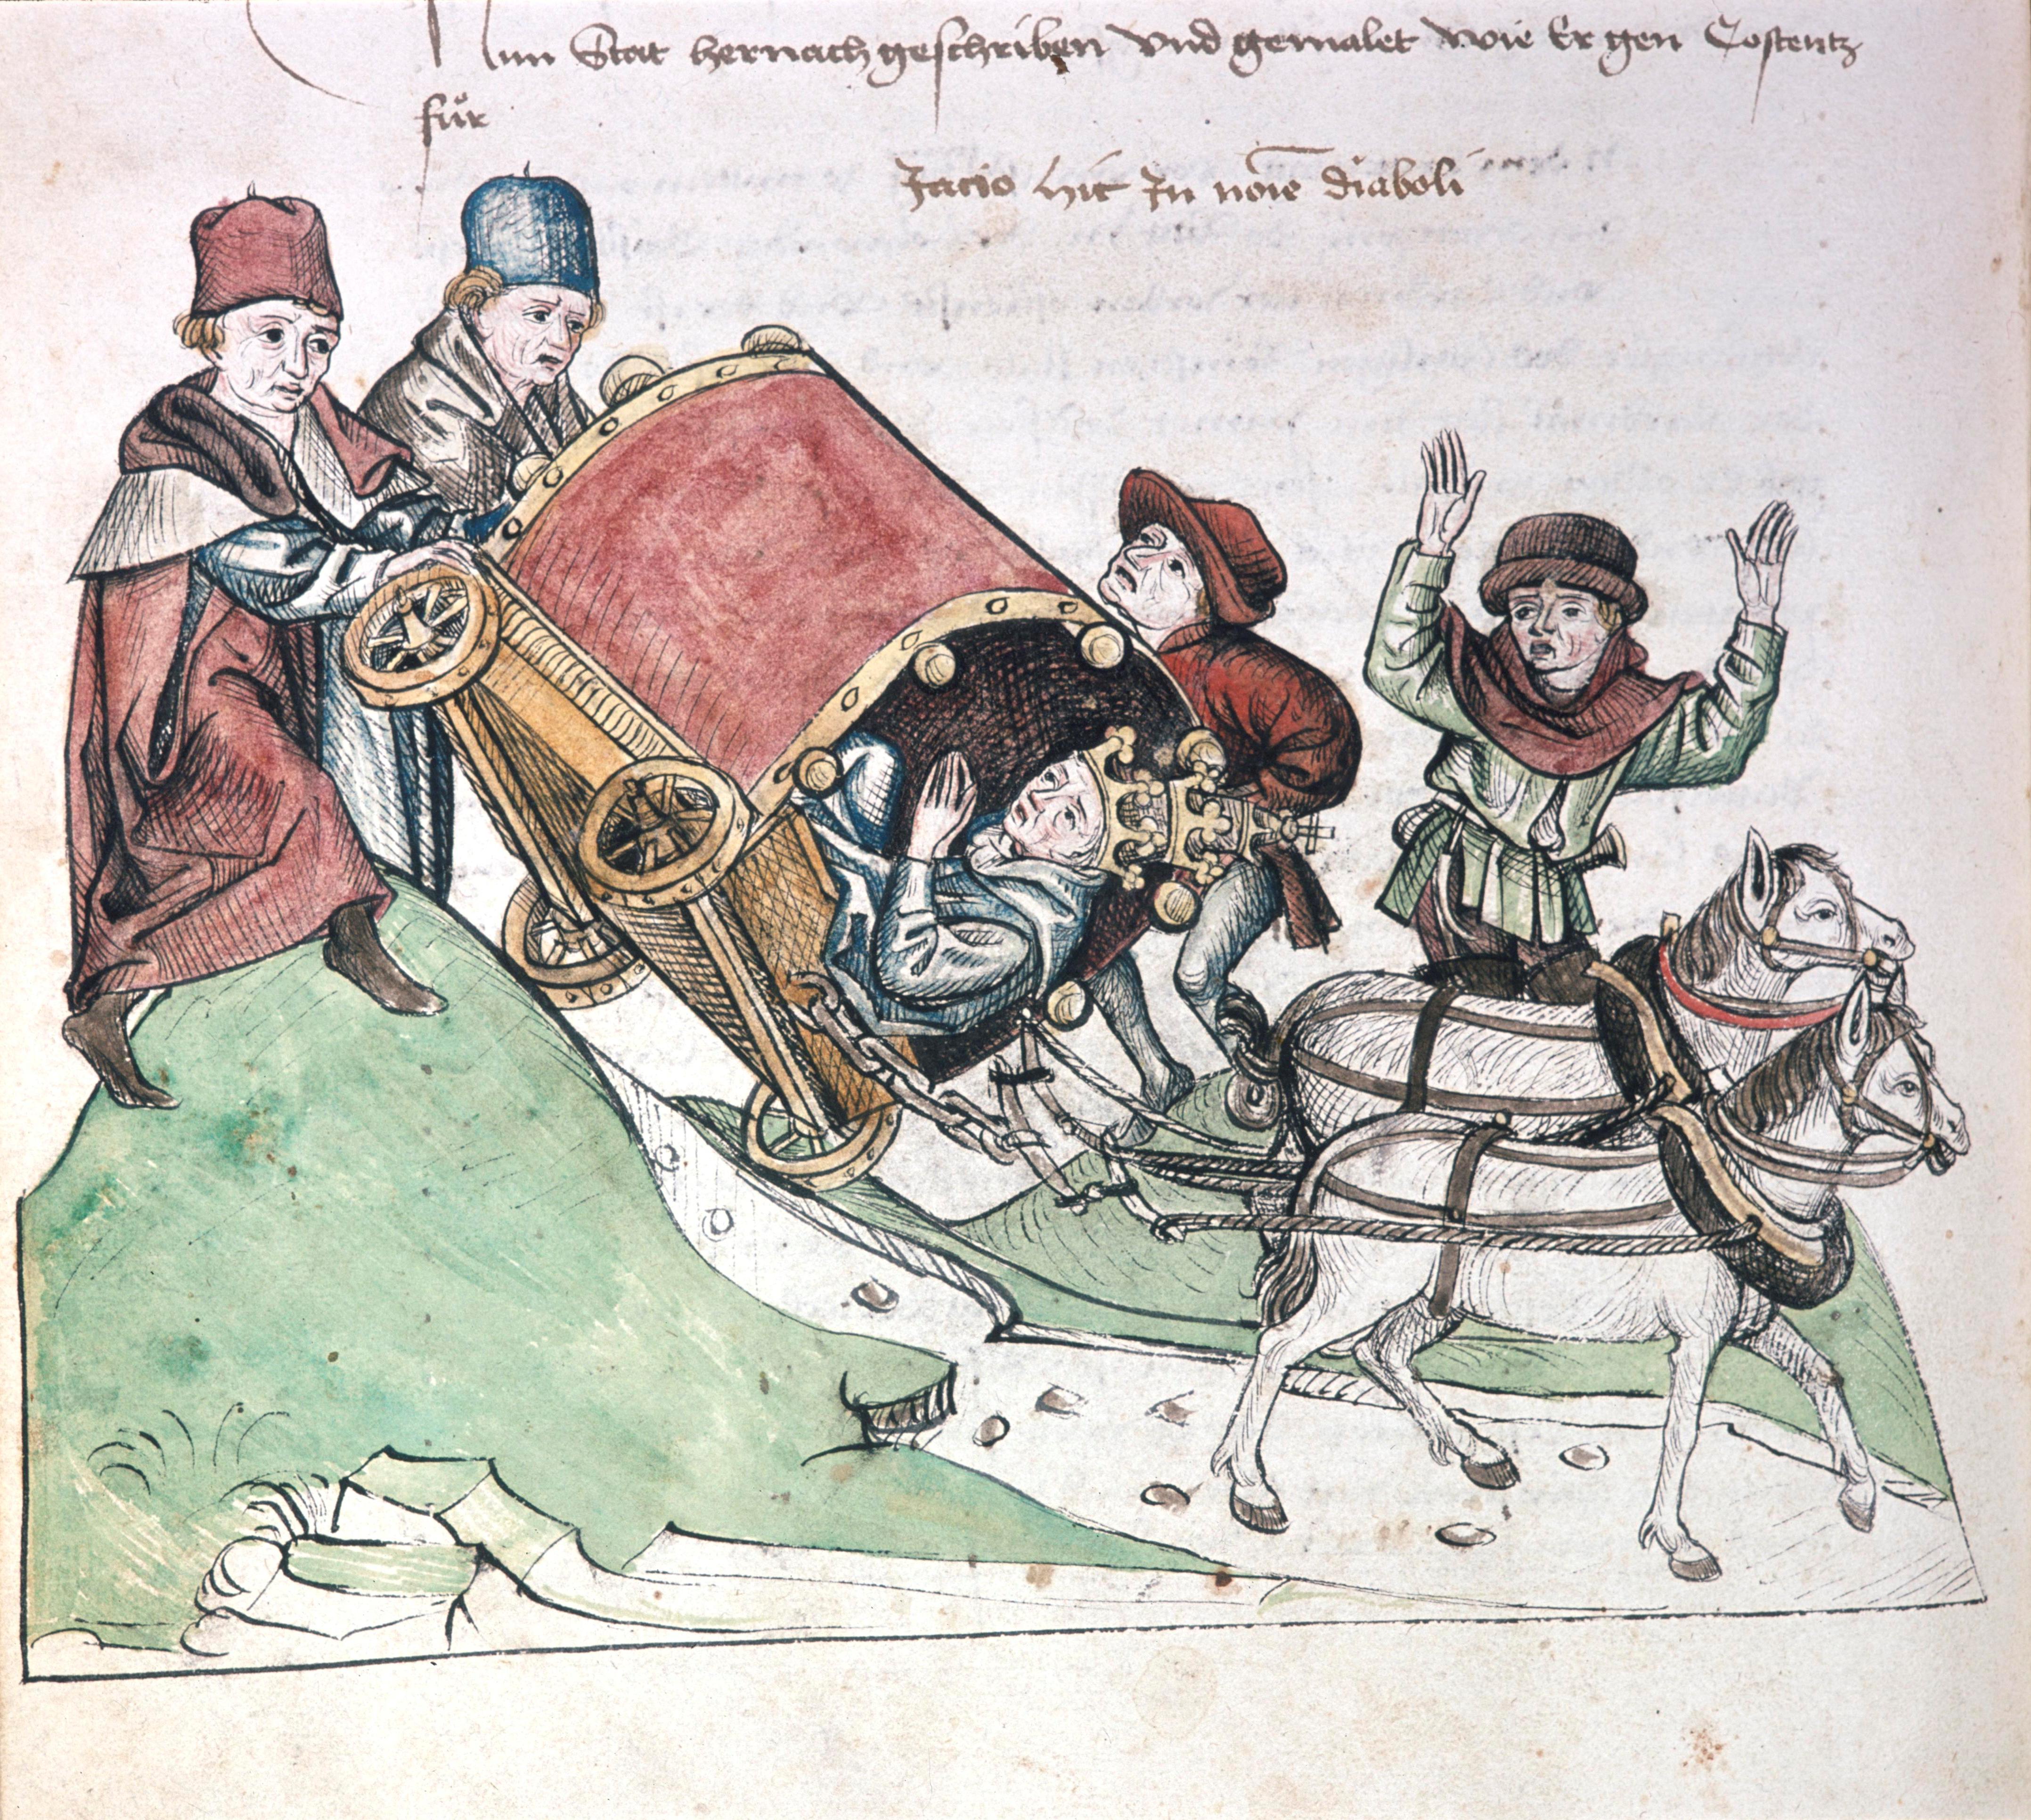 Nun Stat hernach geschriben vnd gemalet wie Er gen Costentz
fůr
Jacio hic In nōie diaboli